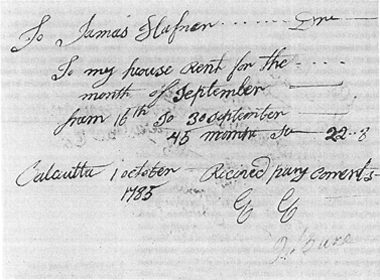 To Jamas Hafner ..... Dre
To my house Rent for the ....
month of September
from 16th to 30 september
45 months Sa 22..8
Calcutta 1 october Recived pay coments
1785